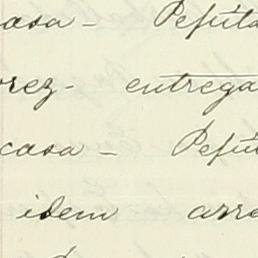 casa - Peputa
rez - entrega
casa - Pepu
idem arre